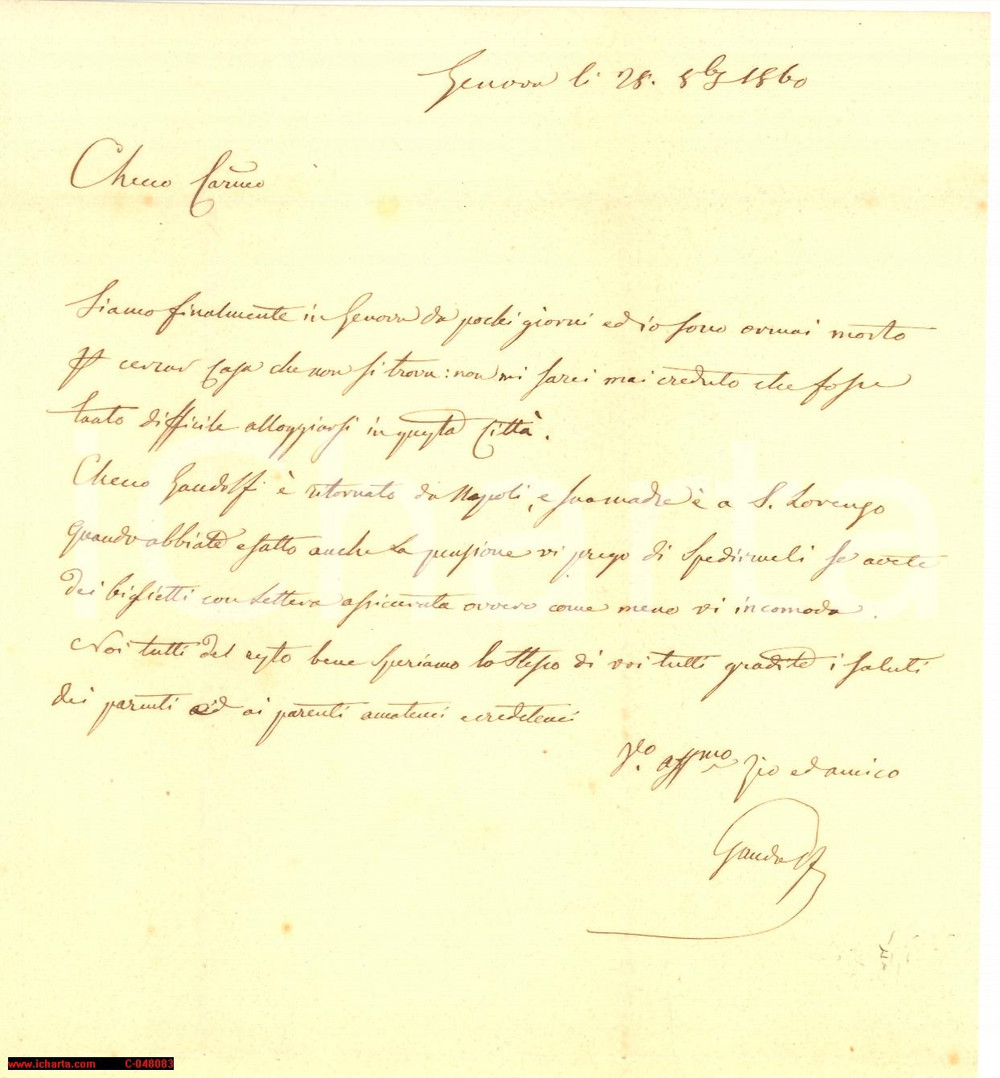 Genova li 28. 8bre 1860
Checo Carmo
Siamo finalmente in Genova da pochi giorni ed io sono ormai morto
P cercar Casa che non si trova: non mi sarei mai creduto che fosse
tanto difficile alloggiarsi in questa Città.
Checo Gandolfi è ritornato da Napoli, e sua madre è a S. Lorenzo
Quando abbiate esatto anche la pensione vi prego di spedirmeli se avete
dei biglietti con lettera assicurata ovvero come meno vi incomoda.
Noi tutti del resto bene speriamo lo stesso di voi tutti gradite i saluti
dei parenti ed ai parenti amatemi e credetemi
Vo. affmo Zio ed amico
Gandolfi
www.icharta.com C-048083